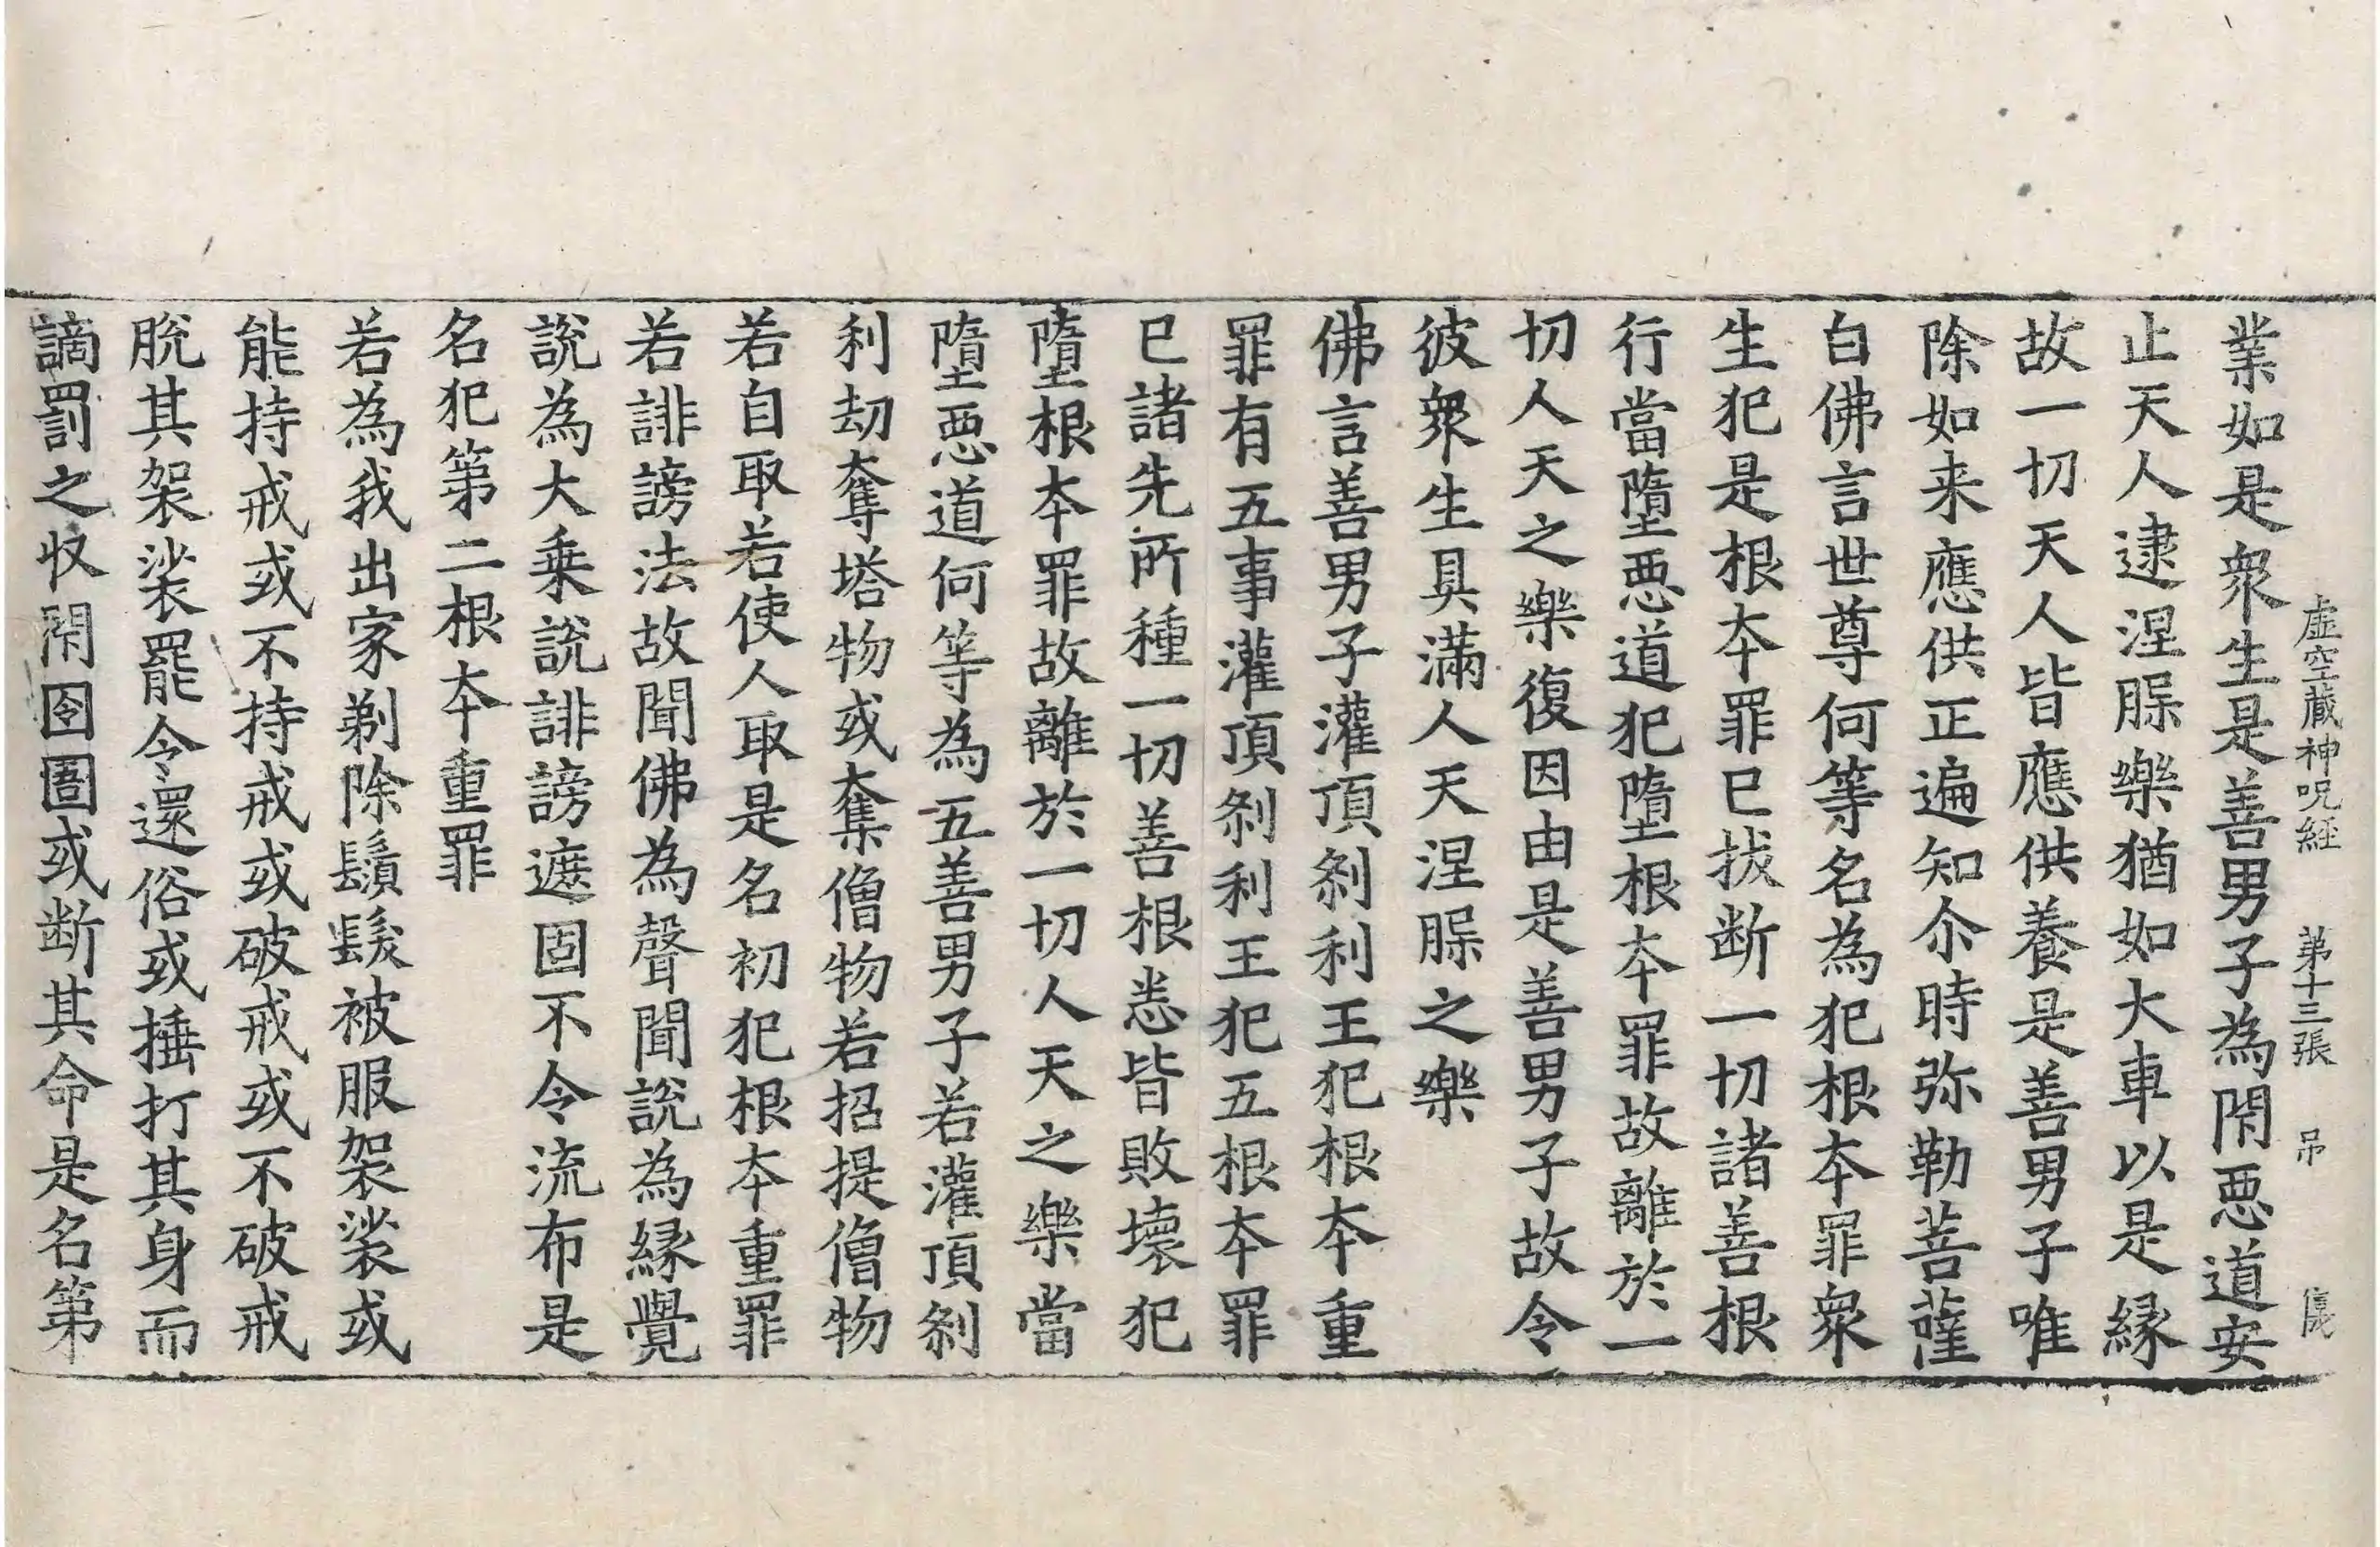 虛空藏神呪經 第十三張 弔
業如是衆生是善男子為閇惡道安
止天人逮涅槃樂猶如大車以是縁
故一切天人皆應供養是善男子唯
除如来應供正遍知尒時弥勒菩薩
白佛言世尊何等名為犯根夲罪衆
生犯是根夲罪已拔断一切諸善根
行當墮惡道犯墮根夲罪故離於一
切人天之樂復因由是善男子故令
彼衆生具滿人天涅槃之樂
佛言善男子灌頂刹利王犯根夲重
罪有五事灌頂刹利王犯五根夲罪
已諸先所種一切善根悉皆敗壞犯
墮根夲罪故離於一切人天之樂當
墮惡道何等為五善男子若灌頂刹
利劫奪塔物或奪僧物若招提僧物
若自取若使人取是名初犯根夲重罪
若誹謗法故聞佛為聲聞說為縁覺
說為大乗說誹謗遮固不令流布是
名犯第二根夲重罪
若為我出家剃除鬚髮被服袈裟或
能持戒或不持戒或破戒或不破戒
脫其袈裟罷令還俗或捶打其身而
謫罰之收閇囹圄或断其命是名第